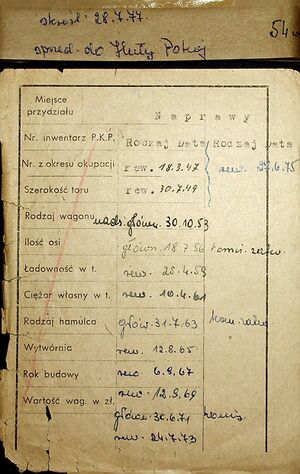 skreśl. 28.7.77.
sprzed. do Huty Pokój
54
Miejsce przydziału
Naprawy
Nr. inwentarz P.K.P.
Rodzaj Data Rodzaj Data
Nr. z okresu okupacji
rew. 18.3.47
rew. 6.75
Szerokość toru
rew. 30.7.49
Rodzaj wagonu
nadz. główn. 30.10.53
Ilość osi
główn. 18.7.56
Ładowność w t.
rew. 25.4.59
Ciężar własny w t.
rew. 10.4.61
Rodzaj hamulca
główn. 31.7.63
Wytwórnia
rew. 12.8.65
Rok budowy
rew. 6.9.67
Wartość wag. w zł.
rew. 12.9.69
główn. 30.6.71
rew. 24.7.73